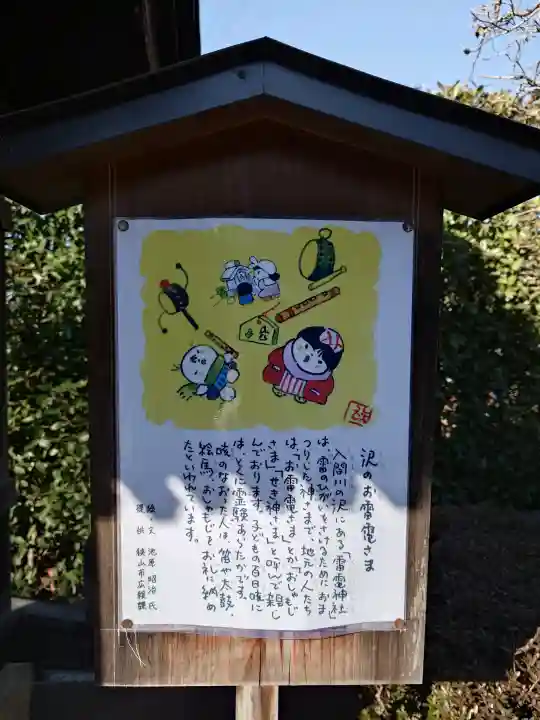 沢のお雷電さま
入間川の沢にある「雷電神社」
は、雷の害いをさけるためにおま
つりした神さまで、地元の人たち
は、「お雷電さま」とか「おしゃもじ
さま」「せき神さま」と呼んで親し
んでおります。子どもの百日咳に
は、とくに霊験あらたかです。
咳のなおった人は、笛や太鼓、
絵馬、おしゃもじをお礼に納め
たといわれています。
絵・文 池原昭治氏
提供 狭山市広報課